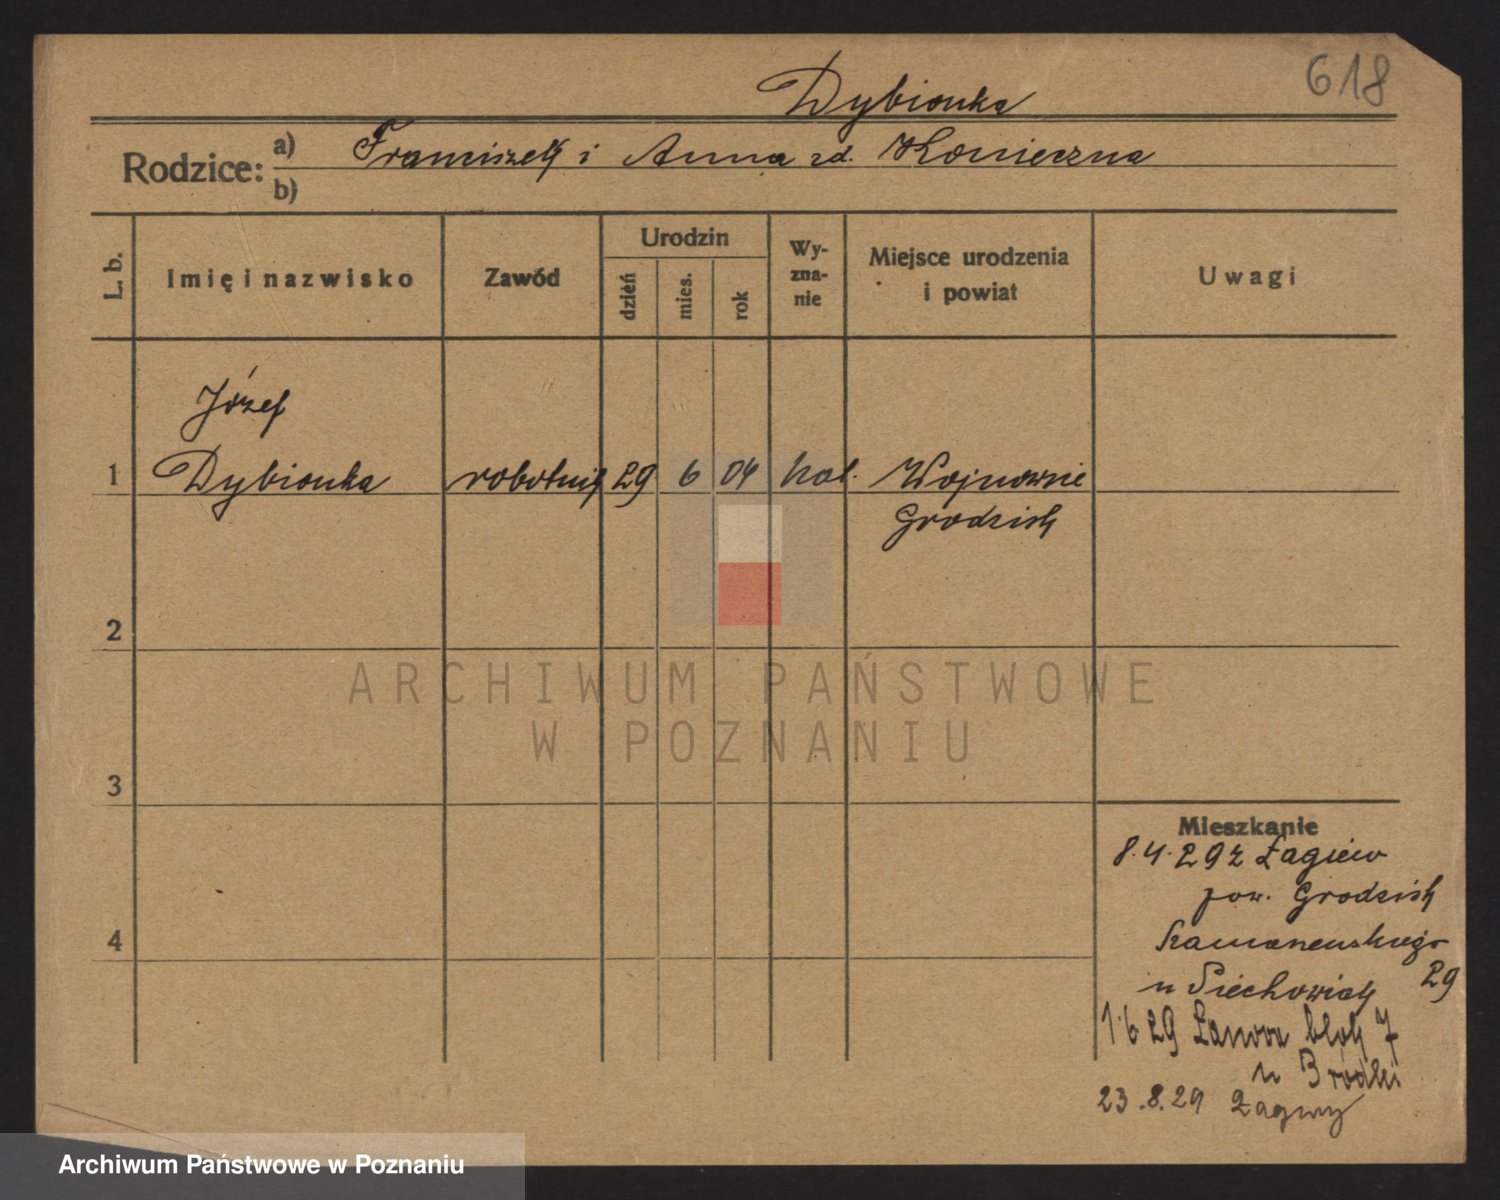 618
Dybionka
Rodzice: a) Franciszek i Anna zd. Konieczna
b)
L. b.
Imię i nazwisko
Zawód
Urodzin
dzień
mies.
rok
Wy-
zna-
nie
Miejsce urodzenia
i powiat
Uwagi
Józef
1 Dybionka robotnik 29 6 04 kat. Wojnowie
Grodzisk
2
3
4
Mieszkanie
8.4.29 z Łagiew
pow. Grodzisk
29
u Piechowiak
1.6 29 blok 7
u
23.8.29
ARCHIWUM PAŃSTWOWE
W POZNANIU
Archiwum Państwowe w Poznaniu